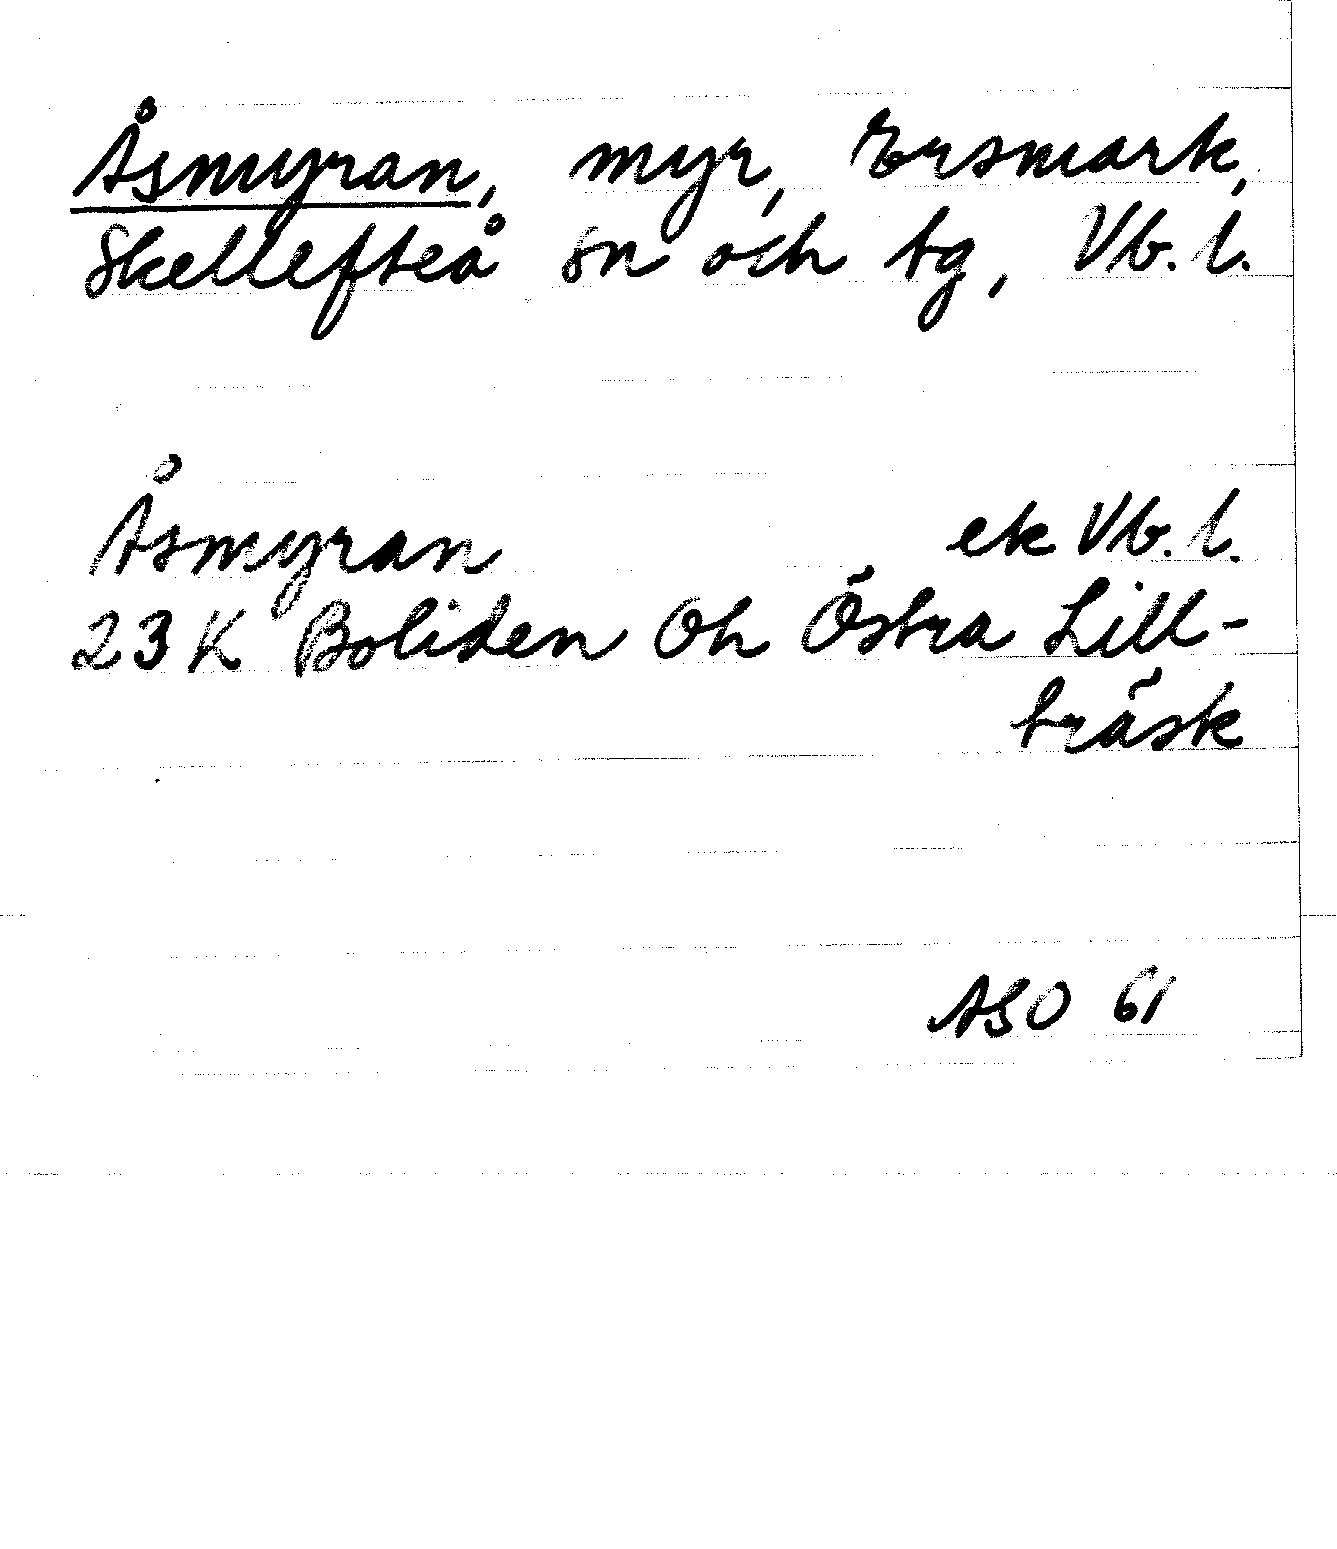 Åsmyran, myr, Ersmark,
Skellefteå sn och tg, Vb. l.
Åsmyran ek Vb. l.
23 K Boliden Oh Östra Lill-
träsk
ASO 61